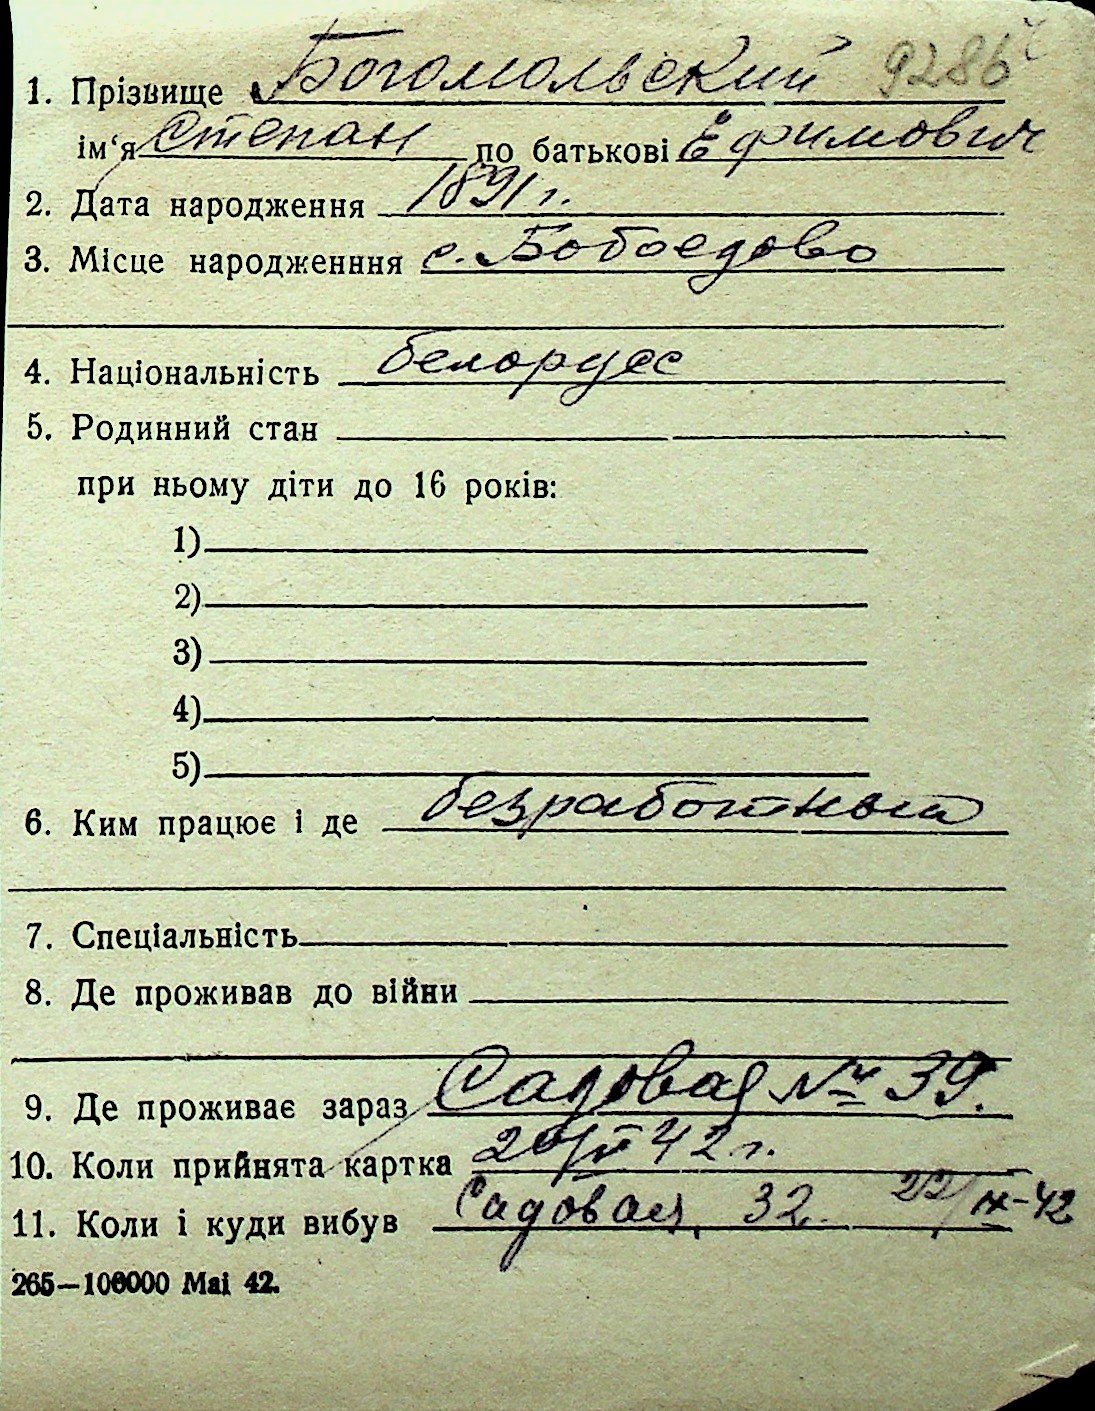 1. Прізвище Богомольский 9286
ім‘я Степан по батькові Ефимович
2. Дата народження 1891 г.
3. Місце народженння с. Бобоедово
4. Національність белорусс
5. Родинний стан
при ньому діти до 16 років:
1)
2)
3)
4)
5)
6. Ким працює і де безработный
7. Спеціальність
8. Де проживав до війни
9. Де проживає зараз Садовая № 39.
10. Коли прийнята картка 42 г.
11. Коли і куди вибув Садовая, 32. 22/IX-42
265—100000 Mai 42.